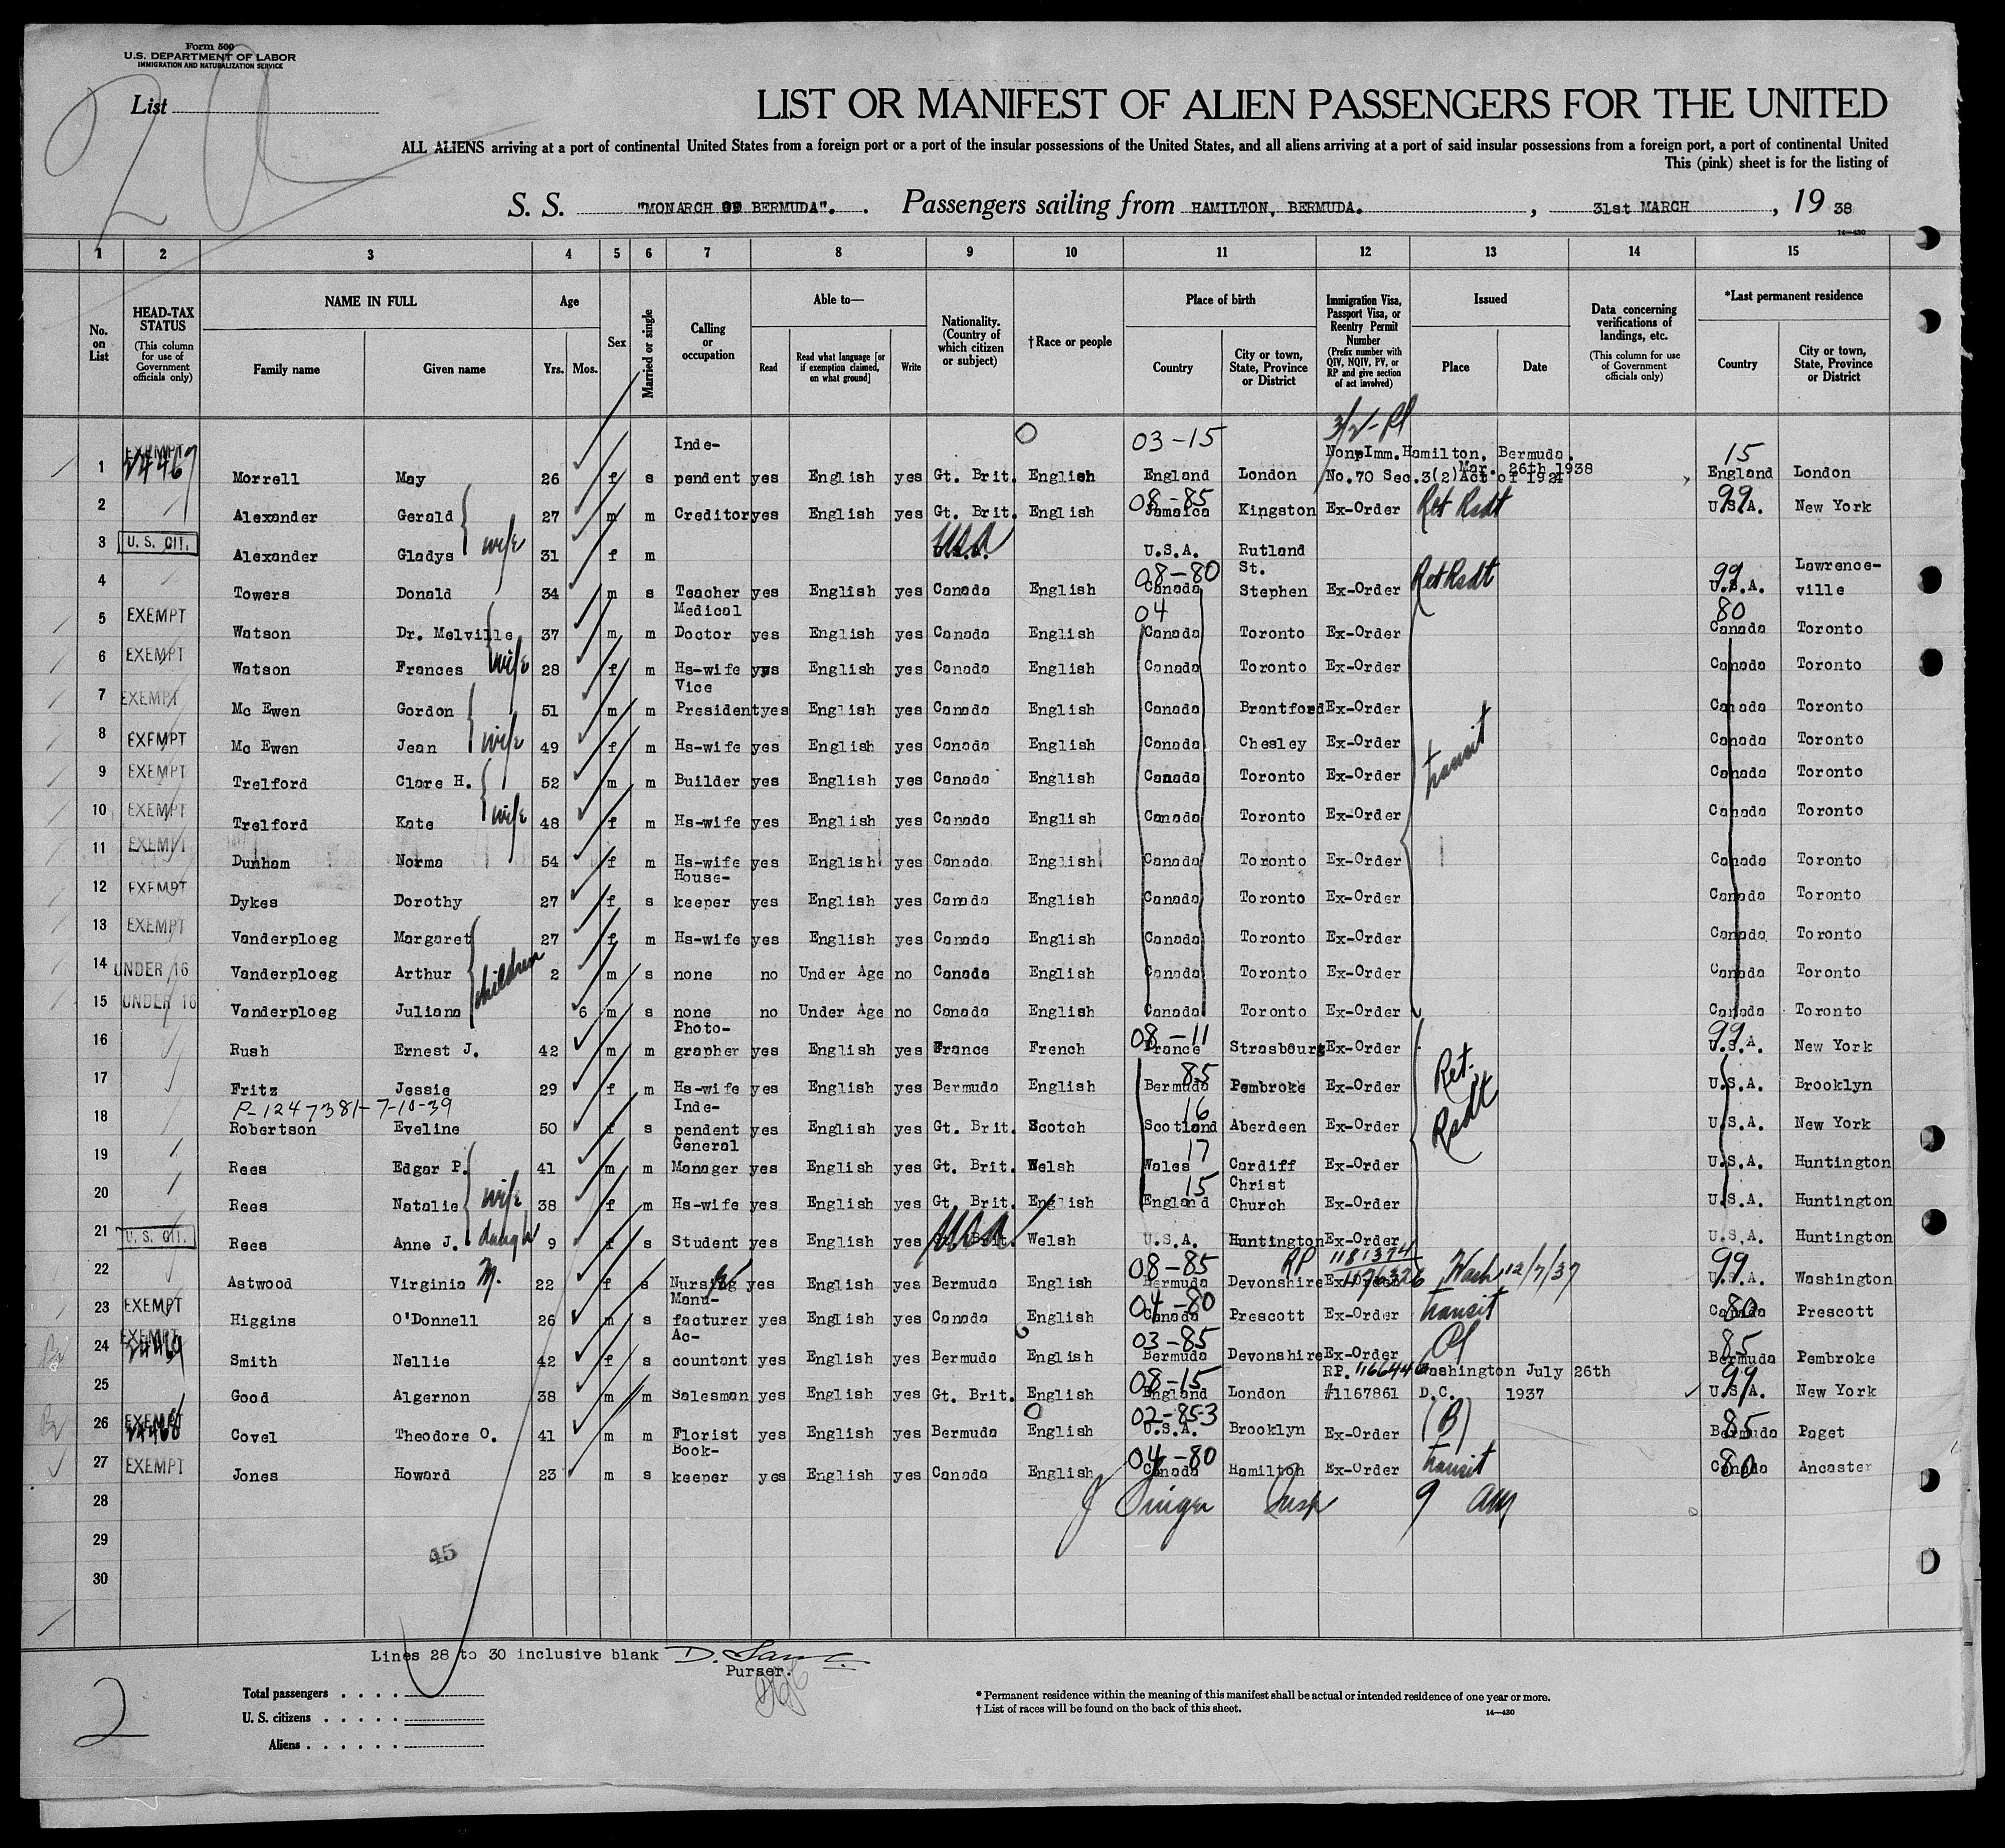 Form 500
U.S. DEPARTMENT OF LABOR
IMMIGRATION AND NATURALIZATION SERVICE
List
LIST OR MANIFEST OF ALIEN PASSENGERS FOR THE UNITED
ALL ALIENS arriving at a port of continental United States from a foreign port or a port of the insular possessions of the United States, and all aliens arriving at a port of said insular possessions from a foreign port, a port of continental United
This (pink) sheet is for the listing of
S. S. "MONARCH OF BERMUDA". Passengers sailing from HAMILTON, BERMUDA. , 31st MARCH , 19 38
14—430
1 2 3 4 5 6 7 8 9 10 11 12 13 14 15
No. on List
HEAD-TAX STATUS (This column for use of Government officials only)
NAME IN FULL Family name Given name
Age Yrs. Mos.
Sex
Married or single
Calling or occupation
Able to— Read Read what language [or if exemption claimed, on what ground] Write
Nationality. (Country of which citizen or subject)
†Race or people
Place of birth Country City or town, State, Province or District
Immigration Visa, Passport Visa, or Reentry Permit Number (Prefix number with QIV, NQIV, PV, or RP and give section of act involved)
Issued Place Date
Data concerning verifications of landings, etc. (This column for use of Government officials only)
*Last permanent residence Country City or town, State, Province or District
03-15 15
1 EXEMPT 24467 Morrell May 26 f s Inde- pendent yes English yes Gt. Brit. English England London Non-Imm. Hamilton, Bermuda. No.70 Sec.3(2)Act of 1924 Mar. 26th 1938 England London
2 Alexander Gerald 27 m m Creditor yes English yes Gt. Brit. English 08-85 Jamaica Kingston Ex-Order Ret Rsdt 99 U.S.A. New York
3 U. S. CIT. Alexander Gladys wife 31 f m U.S.A. U.S.A. Rutland
4 Towers Donald 34 m s Teacher yes English yes Canada English 08-80 Canada St. Stephen Ex-Order Ret Rsdt 99 U.S.A. Lawrence- ville
5 EXEMPT Watson Dr. Melville 37 m m Medical Doctor yes English yes Canada English 04 Canada Toronto Ex-Order 80 Canada Toronto
6 EXEMPT Watson Frances wife 28 f m Hs-wife yes English yes Canada English Canada Toronto Ex-Order Canada Toronto
7 EXEMPT Mc Ewen Gordon 51 m m Vice President yes English yes Canada English Canada Brantford Ex-Order Canada Toronto
8 EXEMPT Mc Ewen Jean wife 49 f m Hs-wife yes English yes Canada English Canada Chesley Ex-Order transit Canada Toronto
9 EXEMPT Trelford Clare H. 52 m m Builder yes English yes Canada English Canada Toronto Ex-Order Canada Toronto
10 EXEMPT Trelford Kate wife 48 f m Hs-wife yes English yes Canada English Canada Toronto Ex-Order Canada Toronto
11 EXEMPT Dunham Norma 54 f m Hs-wife yes English yes Canada English Canada Toronto Ex-Order Canada Toronto
12 EXEMPT Dykes Dorothy 27 f s House- keeper yes English yes Canada English Canada Toronto Ex-Order Canada Toronto
13 EXEMPT Vanderploeg Margaret 27 f m Hs-wife yes English yes Canada English Canada Toronto Ex-Order Canada Toronto
14 UNDER 16 Vanderploeg Arthur children 2 m s none no Under Age no Canada English Canada Toronto Ex-Order Canada Toronto
15 UNDER 16 Vanderploeg Juliana 6 m s none no Under Age no Canada English Canada Toronto Ex-Order Canada Toronto
16 Rush Ernest J. 42 m m Photo- grapher yes English yes France French 08-11 France Strasbourg Ex-Order 99 U.S.A. New York
17 Fritz Jessie 29 f m Hs-wife yes English yes Bermuda English 85 Bermuda Pembroke Ex-Order Ret. Rsdt U.S.A. Brooklyn
P-1247381-7-10-39
18 Robertson Eveline 50 f s Inde- pendent yes English yes Gt. Brit. Scotch 16 Scotland Aberdeen Ex-Order U.S.A. New York
19 Rees Edgar P. 41 m m General Manager yes English yes Gt. Brit. Welsh 17 Wales Cardiff Ex-Order U.S.A. Huntington
20 Rees Natalie wife 38 f m Hs-wife yes English yes Gt. Brit. English 15 England Christ Church Ex-Order U.S.A. Huntington
21 U. S. CIT. Rees Anne J. daugh 9 f s Student yes English yes Gt. Brit. Welsh U.S.A. Huntington Ex-Order U.S.A. Huntington
22 Astwood Virginia M. 22 f s Nursing yes English yes Bermuda English 08-85 Bermuda Devonshire RP 1181374 1176326 Ex-Order Wash 12/7/37 99 U.S.A. Washington
23 EXEMPT Higgins O'Donnell 26 m s Manu- facturer yes English yes Canada English 04-80 Canada Prescott Ex-Order transit 80 Canada Prescott
24 EXEMPT Smith Nellie 42 f s Ac- countant yes English yes Bermuda English 03-85 Bermuda Devonshire Ex-Order 85 Bermuda Pembroke
25 Good Algernon 38 m m Salesman yes English yes Gt. Brit. English 08-15 England London RP. #1167861 Washington D.C. July 26th 1937 99 U.S.A. New York
26 EXEMPT Covel Theodore O. 41 m m Florist yes English yes Bermuda English 02-85-3 U.S.A. Brooklyn Ex-Order (B) 85 Bermuda Paget
27 EXEMPT Jones Howard 23 m s Book- keeper yes English yes Canada English 04-80 Canada Hamilton Ex-Order transit 80 Canada Ancaster
28 Singer Insp
29
45
30
Lines 28 to 30 inclusive blank
Purser.
2
Total passengers . . . .
U. S. citizens . . . . .
Aliens . . . . . .
* Permanent residence within the meaning of this manifest shall be actual or intended residence of one year or more.
† List of races will be found on the back of this sheet.
14—430